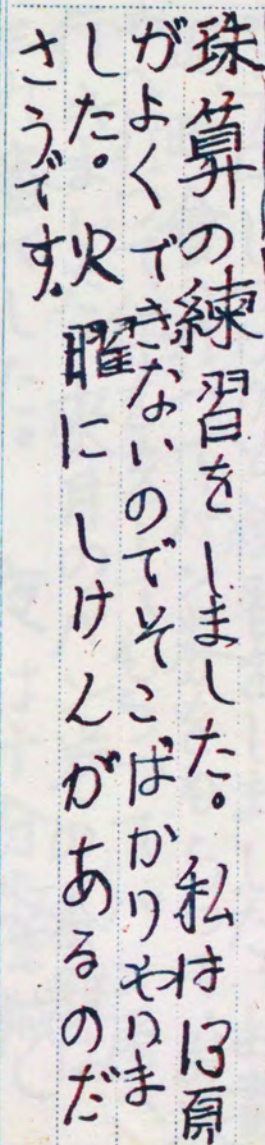 珠算の練習をしました。私は13頁
がよくできないのでそこばかりやりま
した。火曜にしけんがあるのだ
さうです。